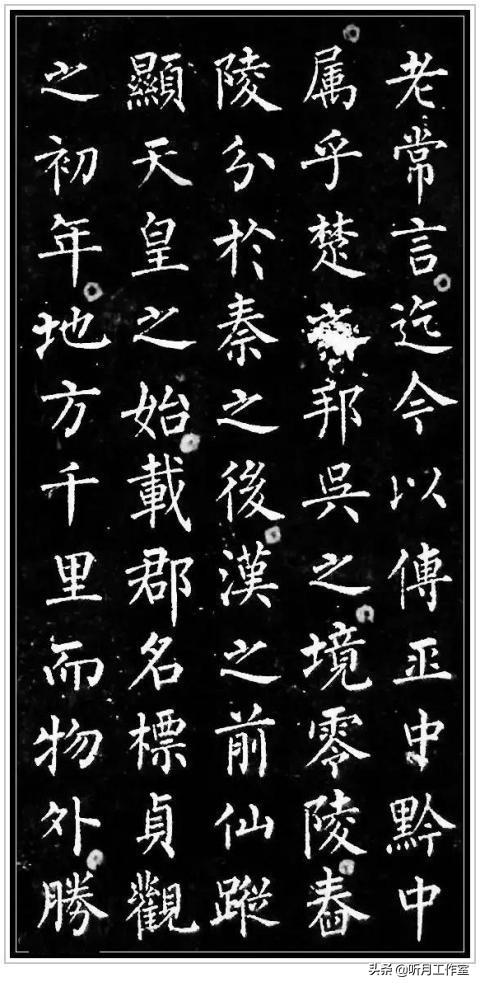 老常言迄今以傳巫中黔中
属乎楚邦吳之境零陵舂
陵分於秦之後漢之前仙蹤
顯天皇之始載郡名標貞觀
之初年地方千里而物外勝
头条 @听月工作室